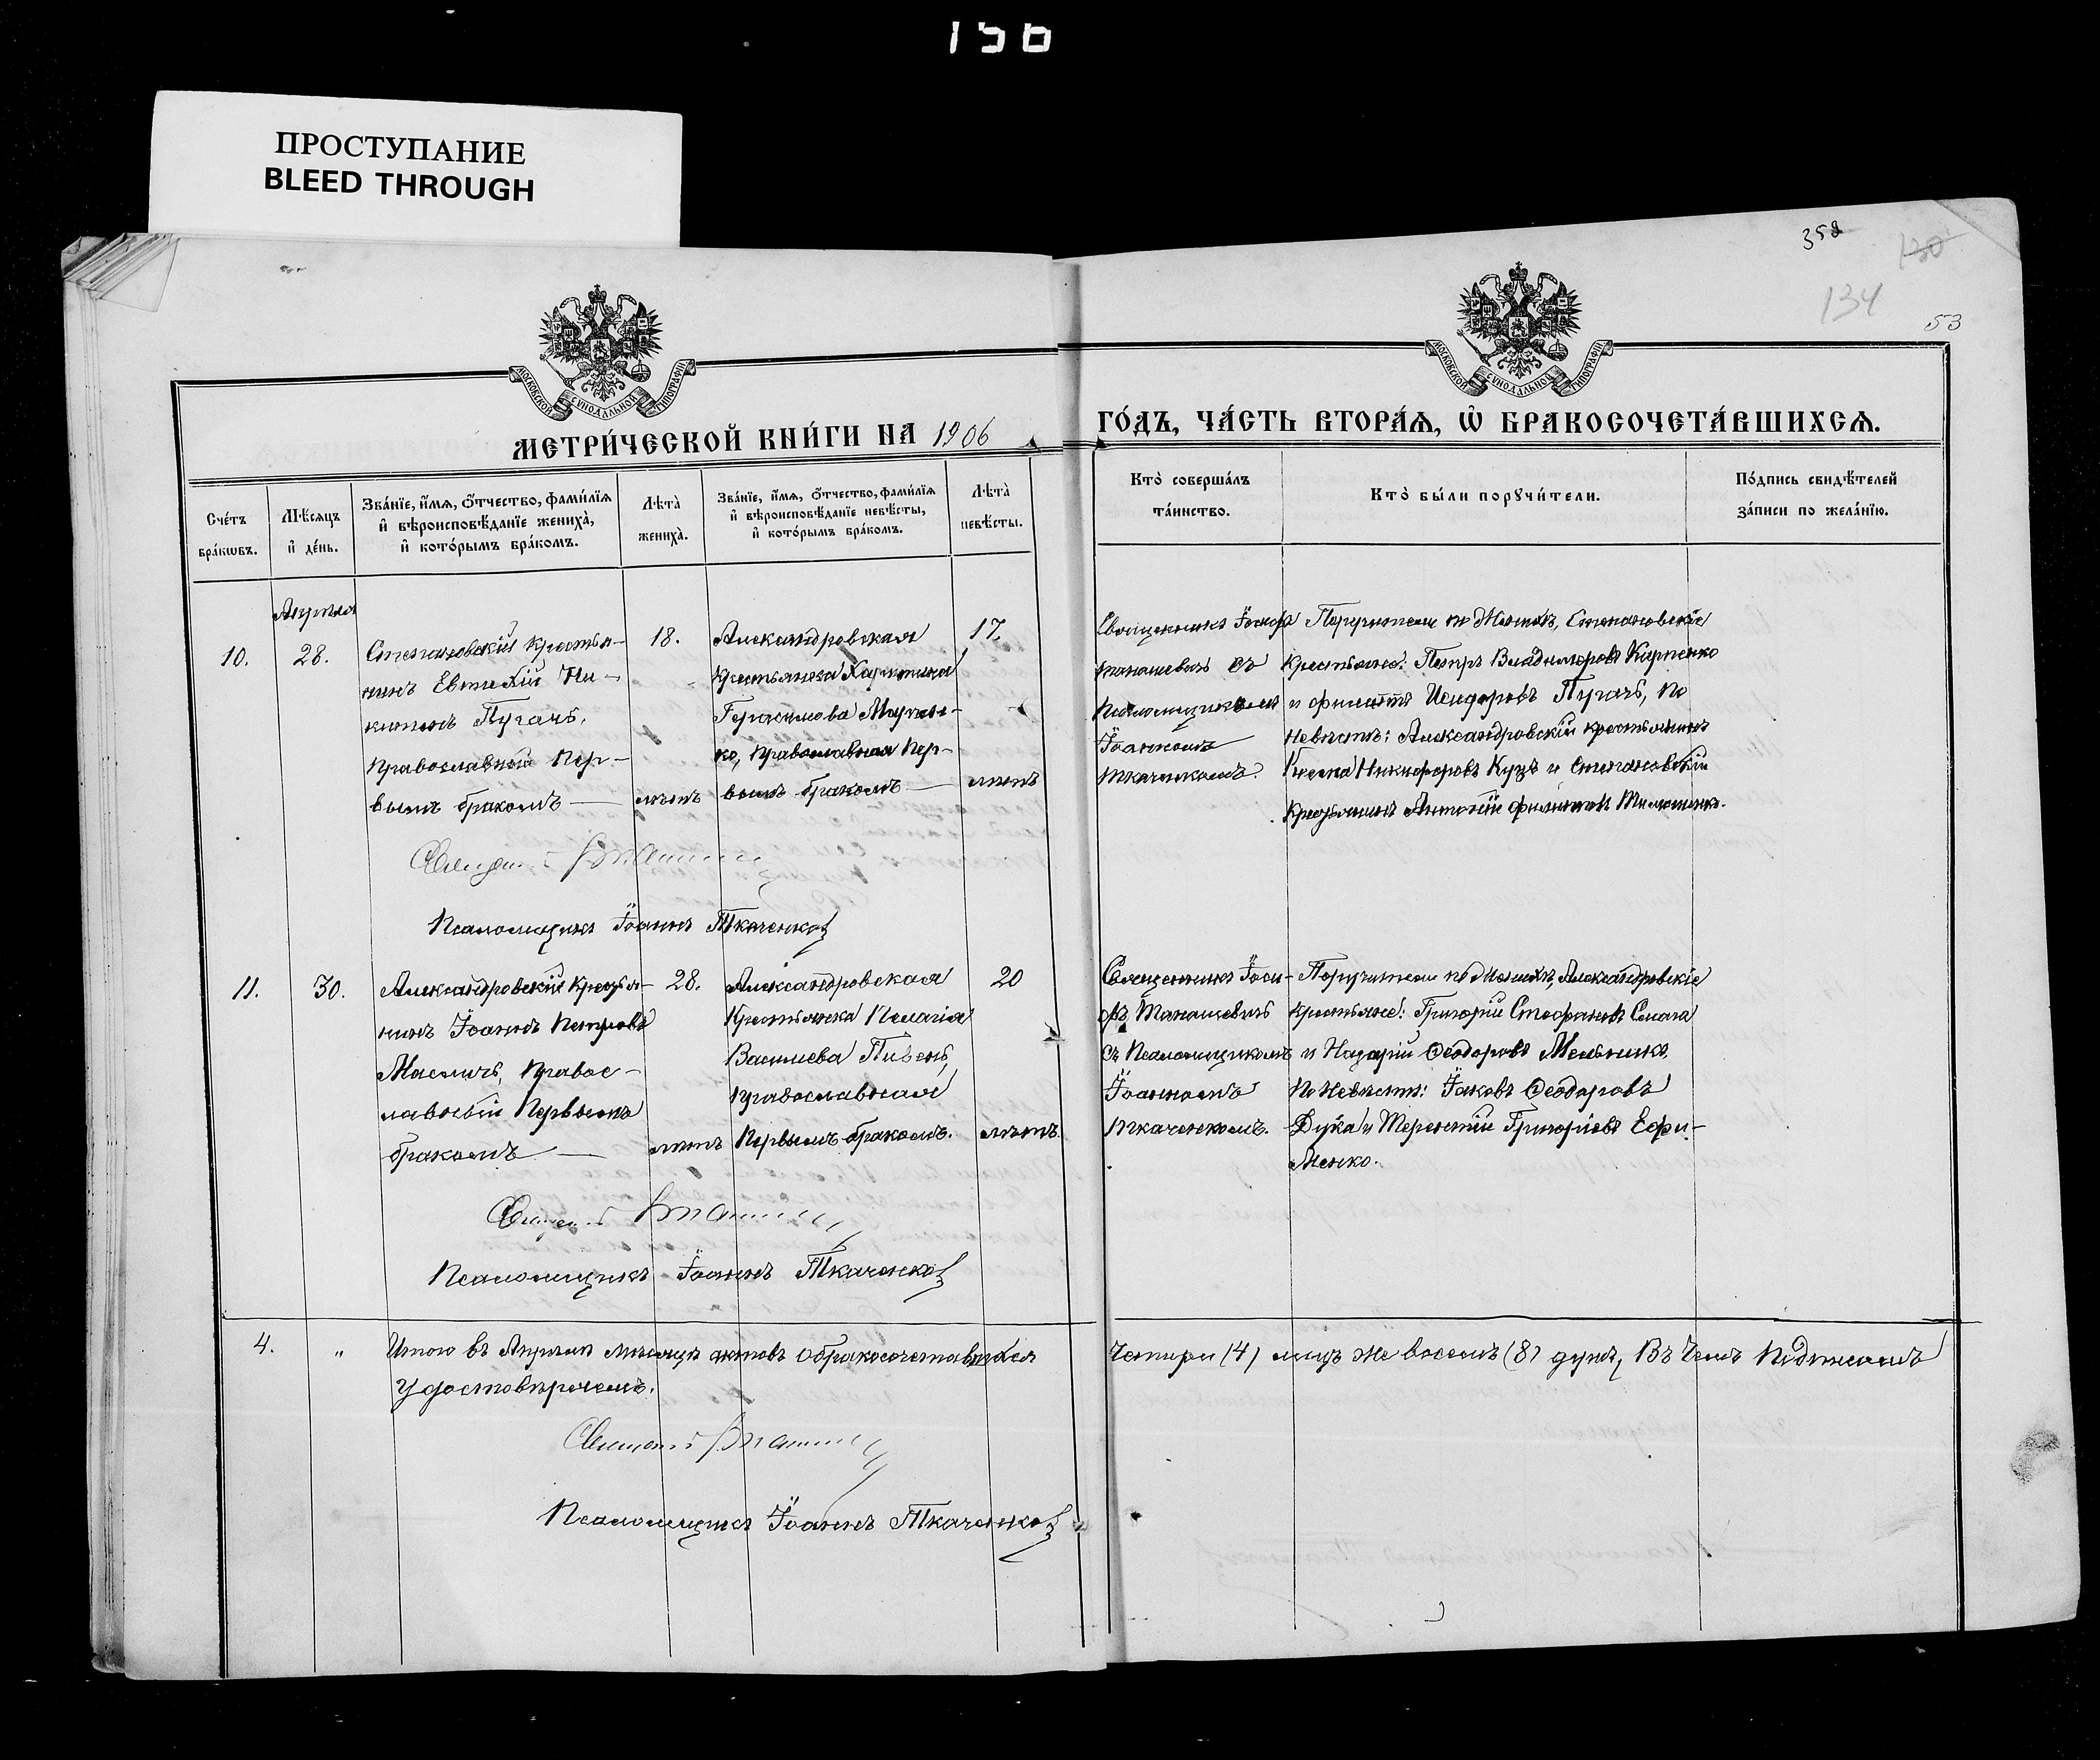 156
ПРОСТУПАНИЕ
BLEED THROUGH
358
130
134
53
МОСКОВСКОЙ СѴНОДАЛЬНОЙ ТИПОГРАФІИ
МОСКОВСКОЙ СѴНОДАЛЬНОЙ ТИПОГРАФІИ
МЕТРИ́ЧЕСКОЙ КНИ́ГИ НА 1906
ГО́ДЪ, ЧА́СТЬ ВТОРА́Ѧ, Ѡ҆ БРАКОСОЧЕТА́ВШИХСѦ.
Сче́тъ
бра́кѡвъ.
Мѣ́сяцъ
и҆ де́нь.
Зва́нїе, и҆́мѧ, ѻ҆́тчество, фами́лїѧ
и҆ вѣроисповѣ́данїе жениха̀,
и҆ кото́рымъ бра́комъ.
Лѣта̀
жениха̀.
Зва́нїе, и҆́мѧ, ѻ҆́тчество, фами́лїѧ
и҆ вѣроисповѣ́данїе невѣ́сты,
и҆ кото́рымъ бра́комъ.
Лѣта̀
невѣ́сты.
Кто̀ соверша́лъ
та́инство.
Кто̀ бы́ли порꙋчи́тели.
По́дпись свидѣ́телей
за́писи по жела́нїю.
Апрѣля
10.
28.
Степановскій крестья-
нинъ Евтихій Ни-
китинъ Пугачъ,
православный пер-
вымъ бракомъ
18.
лѣтъ
Александровская
крестьянка Харитина
Герасимова
ко, православная пер-
вымъ бракомъ
17.
лѣтъ
Священникъ Іосифъ
Танашевичъ съ
псаломщикомъ
Іоанномъ
Ткаченкомъ.
Поручители по Женихѣ, Степановскіе
крестьяне: Петръ Владимировъ Карпенко
и Филиппъ Исидоровъ Пугачъ, по
невѣстѣ: Александровскій крестьянинъ
Никифоровъ Куцъ и Степановскій
крестьянинъ Антоній Филиповъ
Священникъ
Псаломщикъ Іоаннъ Ткаченко
11.
30.
Александровскій крестья-
нинъ Іоаннъ Петровъ
Масличъ, правос-
лавный первымъ
бракомъ
28.
лѣтъ
Александровская
крестьянка Пелагія
Васильева Пивень,
православная
первымъ бракомъ.
20
лѣтъ
Священникъ Іоси-
фъ Танашевичъ
съ псаломщикомъ
Іоанномъ
Ткаченкомъ.
Поручители по Женихѣ, Александровскіе
крестьяне: Григорій Стефановъ Смага
и Назарій Ѳеодоровъ Мельникъ,
по Невѣстѣ: Іаковъ Ѳеодоровъ
Дука и Терентій Григоріевъ Ефи-
менко.
Священникъ
Псаломщикъ Іоаннъ Ткаченко
4.
"
Итого въ Апрѣлѣ мѣсяцѣ актовъ о бракосочетавшихся
Четыре (4) лицъ же восемь (8) душъ, въ чемъ подписомъ
удостовѣряемъ.
Священникъ
Псаломщикъ Іоаннъ Ткаченко